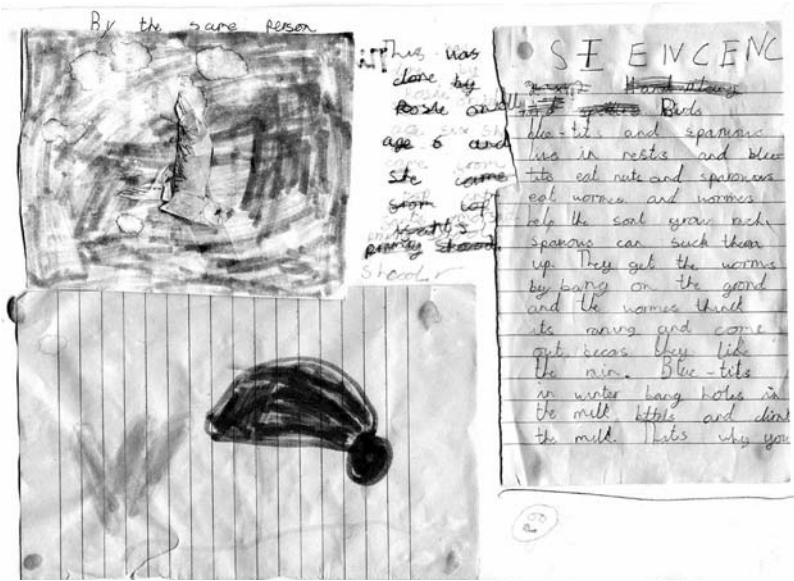 By the same person
This was
done by
age 6 and
she came
from
primary
SIENCENC
Birds
blue-tits and sparows
live in nests and blue
tits eat nuts and sparows
eat wormes and wormes
help the soal grow rich.
sparows can suck them
up. They get the worms
by bang on the grond
and the wormes thinck
its raning and come
out becos they like
the rain. Blue-tits
in winter bang holes in
the milk bttels and drink
the milk. Thats why you